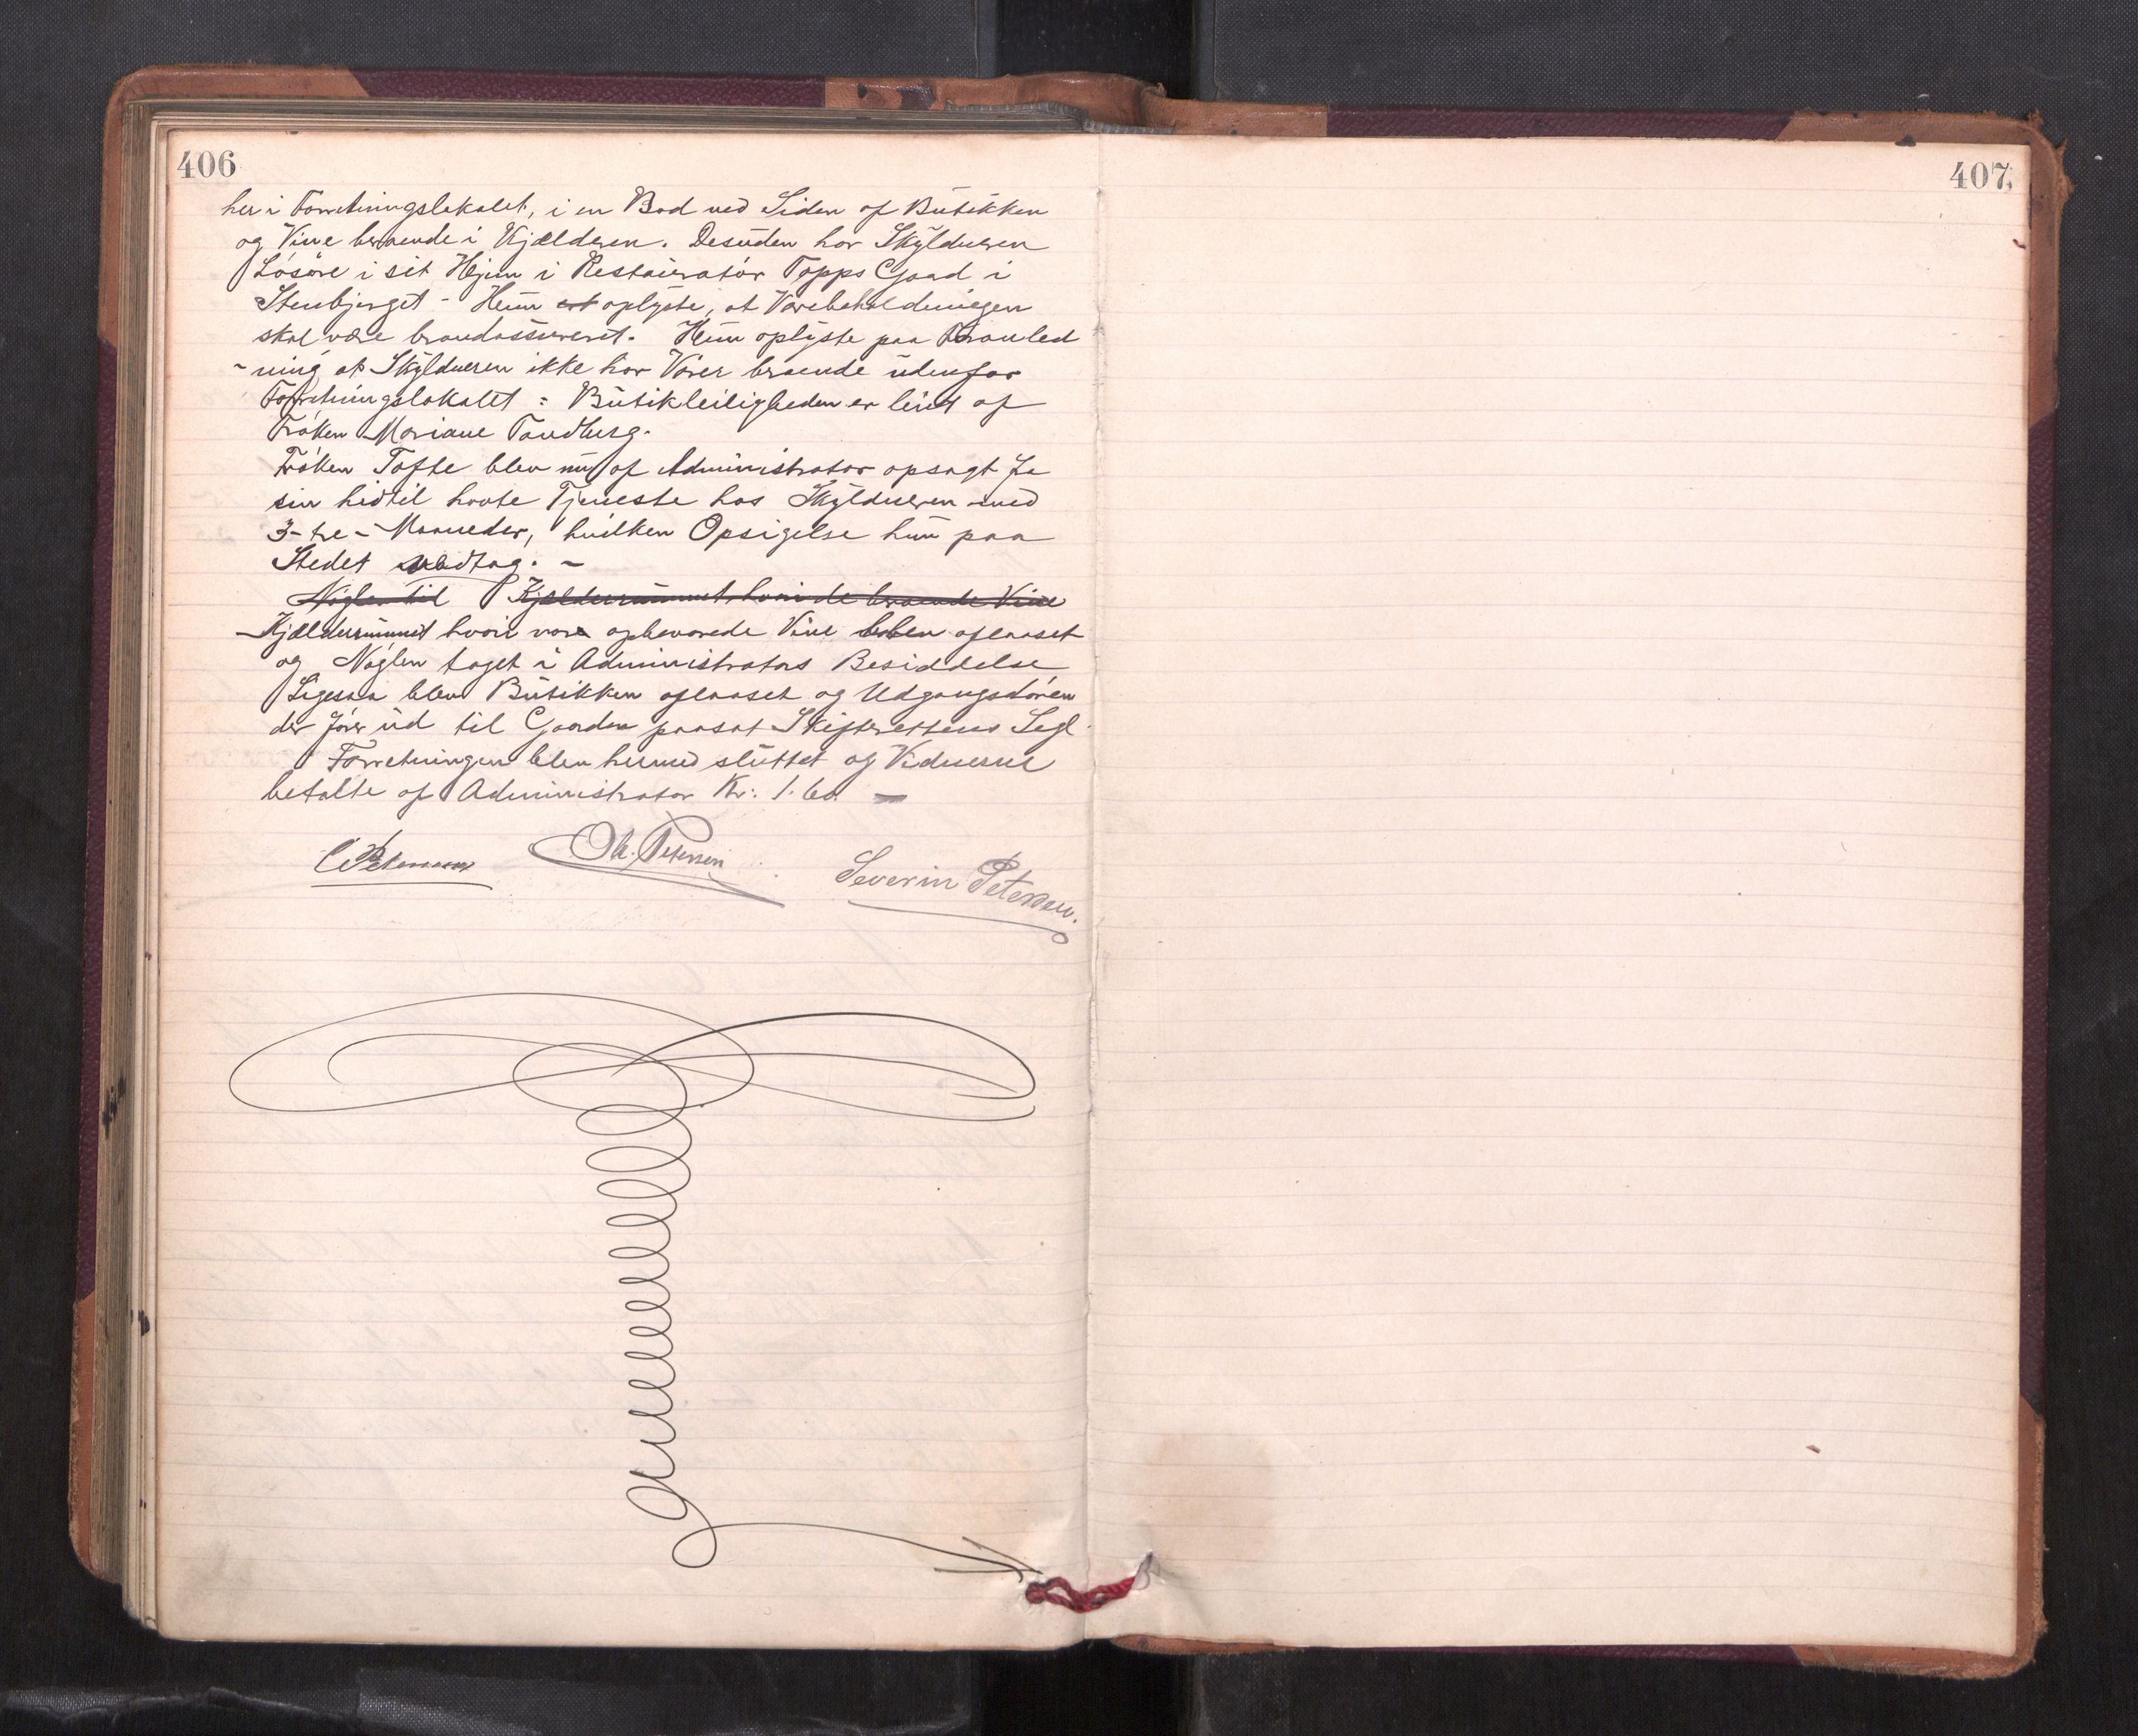 406
her i Forretningslokalet, i en Bod ved Siden af Butikken
og Vine beroende i Kjælderen. Desuden har Skyldneren
Løsøre i sit Hjem i Restauratør Topps Gaard i
Stenbjerget - Hun oplyste, at Varebeholdningen
skal være brandassureret. Hun oplyste paa Foranled
-ning at Skyldneren ikke har Varer beroende udenfor
Forretningslokalet : Butikleiligheden er leiet af
Frøken Mariane Tandberg.
Frøken Tofte blev nu af Administrator opsagt fra
sin hidtil havte Tjeneste hos Skyldneren med
3-tre- Maaneder, hvilken Opsigelse hun paa
Stedet vedtog. -
Nøglen til Kjælderrummet hvori de beroende Vine
Kjælderrummet hvori vare opbevarede Vine blev aflaaset
og Nøglen taget i Administrators Besiddelse
Ligesaa blev Butikken aflaaset og Udgangsdøren
der fører ud til Gaarden paasat Skifterettens Segl.
Forretningen blev hermed sluttet og Vidnerne
betalte af Administrator Kr: 1.60. -
C Petersen Ole. Petersen Severin Petersen.
407